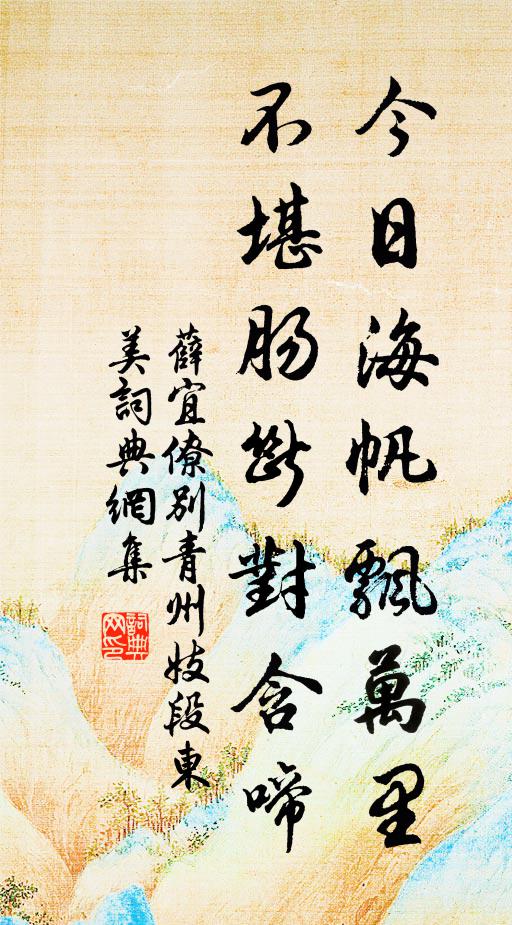 今日海帆飄萬里
不堪肠斷對含啼
薛宜僚別青州妓段東
美詞典網集
詞典
网印